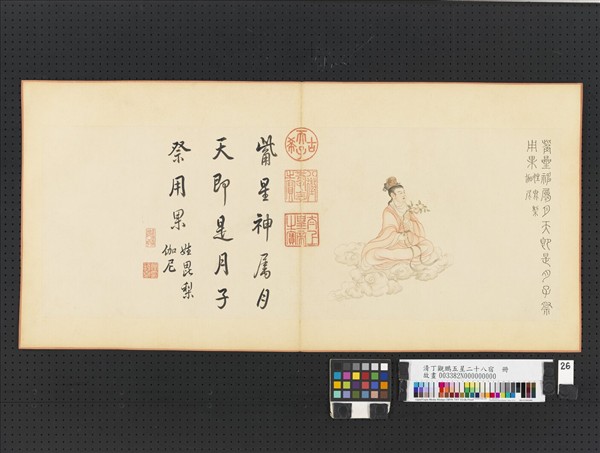 觜星神屬月
天即是月子
祭用果 姓毘梨
伽尼
觜星神屬月天即是月子祭
用果 姓毘梨
伽尼
清丁觀鵬五星二十八宿 冊
故畫 003382N000000000
26